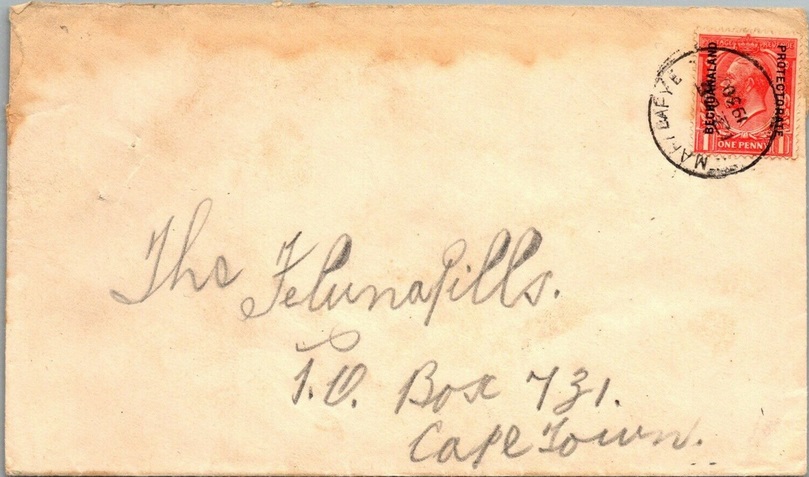 BECHUANALAND
PROTECTORATE
ONE PENNY
The Felunapills.
P.O. Box 731.
Cape Town.